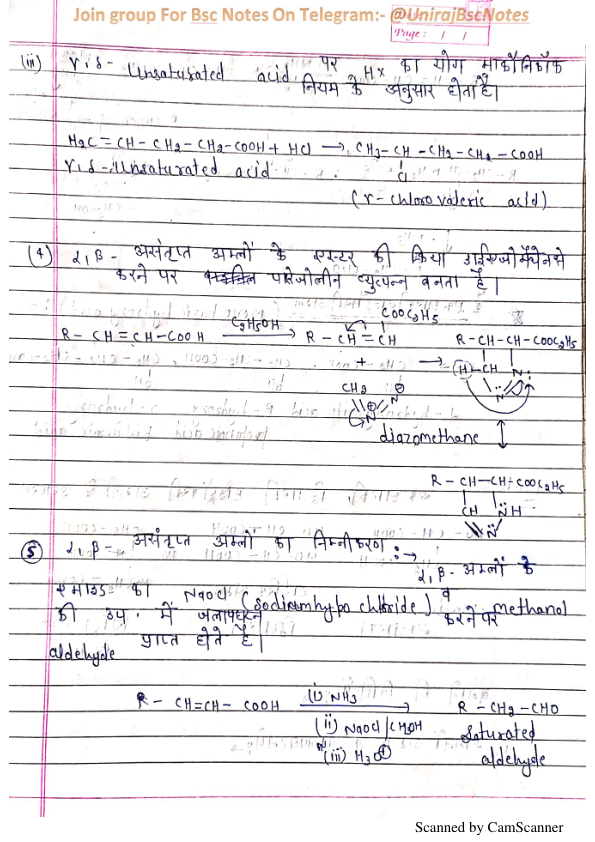 Join group For Bsc Notes On Telegram:- @UnirajBscNotes
Page: / /
(iii) γ,δ- Unsaturated acid पर HX का योग मार्कोनिकॉफ
नियम के अनुसार होता है।
H2C = CH - CH2 - CH2 - COOH + HCl → CH3 - CH - CH2 - CH2 - COOH
Cl
γ,δ - Unsaturated acid
(γ - chlorovaleric acid)
(4) α,β - असंतृप्त अम्लों के एस्टर की क्रिया डाईएजोमेथेन से
करने पर पायरोजोलीन व्युत्पन्न बनता है।
COOC2H5
R - CH = CH - COOH C2H5OH → R - CH = CH
R - CH - CH - COOC2H5
+ →
H - CH N:
CH2 N
N
diazomethane
R - CH - CH - COOC2H5
CH NH
N
(5) α,β - असंतृप्त अम्लों का निम्नीकरण :→
α,β - अम्लों के
एमाइड का NaOCl (Sodium hypo chloride) व methanol
की उप. में जलापघटन करने पर
aldehyde प्राप्त होते है।
R - CH=CH - COOH (i) NH3 → R - CH2 - CHO
(ii) NaOCl/CH3OH Saturated
(iii) H3O⊕ aldehyde
Scanned by CamScanner